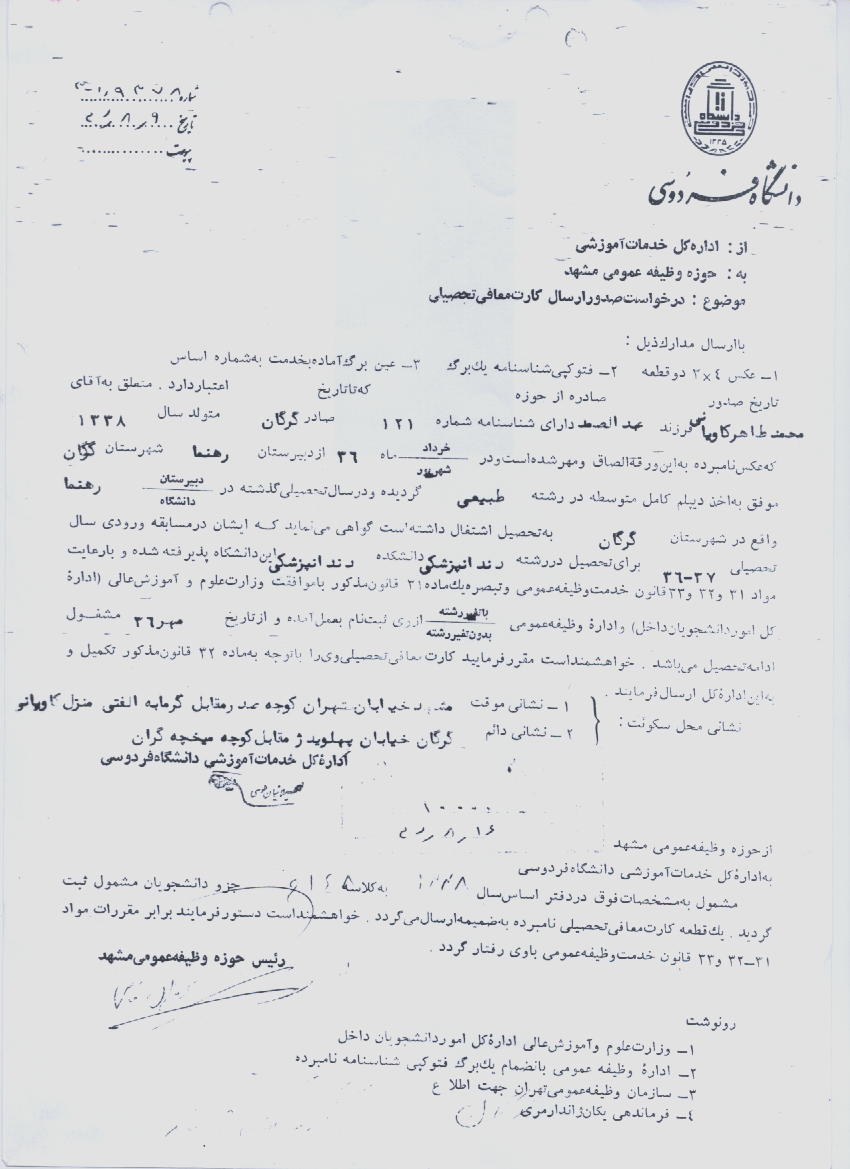 شماره
تاریخ
پیوست
دانشگاه
فردوسی
۱۳۳۵
دانشگاه فردوسی
از : اداره کل خدمات آموزشی
به : حوزه وظیفه عمومی مشهد
موضوع : درخواست صدور ارسال کارت معافی تحصیلی
با ارسال مدارک ذیل :
۱ـ عکس ۴×۳ دو قطعه ۲ـ فتوکپی شناسنامه یک برگ ۳ـ عین برگ آماده بخدمت به شماره اساس
تاریخ صدور صادره از حوزه که تا تاریخ اعتبار دارد . متعلق به آقای
محمد طاهر کاویانی فرزند عبدالصمد دارای شناسنامه شماره ۱۲۱ صادر گرگان متولد سال ۱۳۳۸
که عکس نامبرده به این ورقه الصاق و مهر شده است و در خرداد شهریور ماه ۳۶ از دبیرستان رهنما شهرستان گرگان
موفق به اخذ دیپلم کامل متوسطه در رشته طبیعی گردیده و در سال تحصیلی گذشته در دبیرستان دانشگاه رهنما
واقع در شهرستان گرگان به تحصیل اشتغال داشته است گواهی می‌نماید که ایشان در مسابقه ورودی سال
تحصیلی ۳۷-۳۶ برای تحصیل در رشته دندانپزشکی دانشکده دندانپزشکی این دانشگاه پذیرفته شده و با رعایت
مواد ۳۱ و ۳۲ و ۳۳ قانون خدمت وظیفه عمومی و تبصره یک ماده ۳۱ قانون مذکور با موافقت وزارت علوم و آموزش عالی (ادارهٔ
کل امور دانشجویان داخل) و ادارهٔ وظیفه عمومی با تغییر رشته بدون تغییر رشته از وی ثبت نام بعمل آمده و از تاریخ مهر ۳۶ مشغول
ادامه تحصیل می‌باشد . خواهشمند است مقرر فرمایید کارت معافی تحصیلی وی را با توجه به ماده ۳۲ قانون مذکور تکمیل و
به این اداره کل ارسال فرمایند .
نشانی محل سکونت :
۱ـ نشانی موقت مشهد خیابان تهران کوچه صدر مقابل گرمابه الفتی منزل کاویانی
۲ـ نشانی دائم گرگان خیابان پهلویدژ مقابل کوچه میخچه گران
ادارهٔ کل خدمات آموزشی دانشگاه فردوسی
از حوزه وظیفه عمومی مشهد
به ادارهٔ کل خدمات آموزشی دانشگاه فردوسی
مشمول به مشخصات فوق در دفتر اساس سال به کلاسه جزو دانشجویان مشمول ثبت
گردید . یک قطعه کارت معافی تحصیلی نامبرده به ضمیمه ارسال می‌گردد . خواهشمند است دستور فرمایند برابر مقررات مواد
۳۱ـ۳۲ و ۳۳ قانون خدمت وظیفه عمومی با وی رفتار گردد .
رئیس حوزه وظیفه عمومی مشهد
رونوشت
۱ـ وزارت علوم و آموزش عالی ادارهٔ کل امور دانشجویان داخل
۲ـ ادارهٔ وظیفه عمومی بانضمام یک برگ فتوکپی شناسنامه نامبرده
۳ـ سازمان وظیفه عمومی تهران جهت اطلاع
۴ـ فرماندهی یکان ژاندارمری